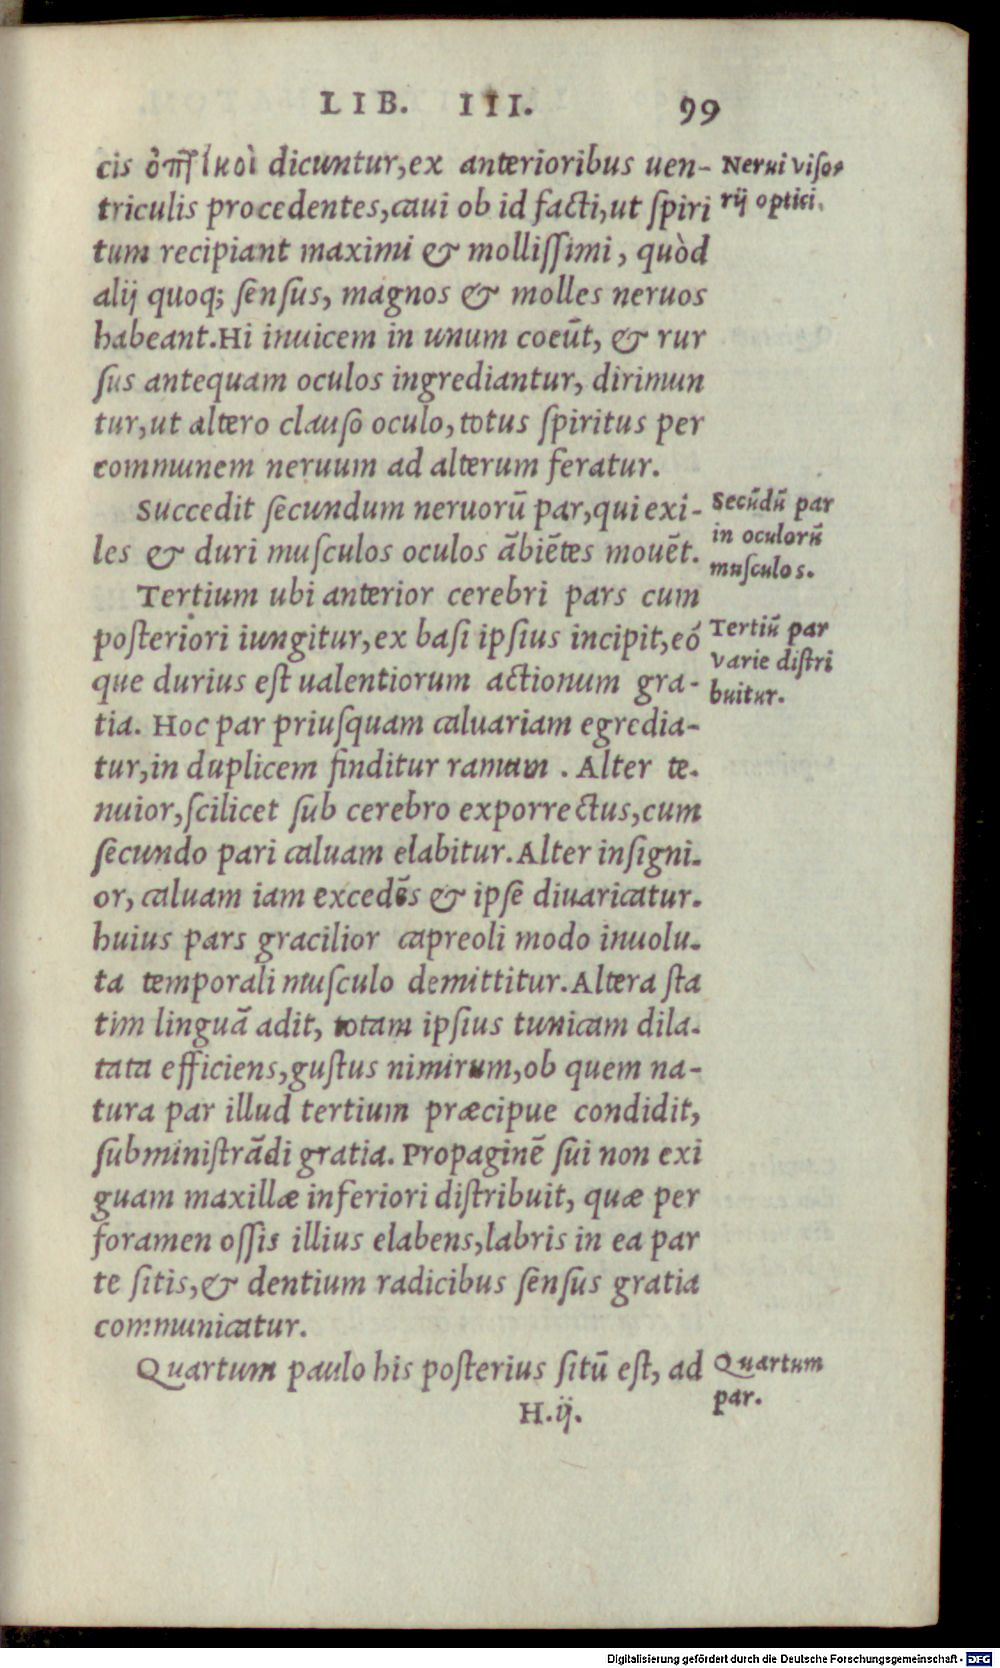 LIB. III. 99
cis ὀπτικοὶ dicuntur, ex anterioribus uen-
triculis procedentes, caui ob id facti, ut spiri
tum recipiant maximi & mollissimi, quòd
alij quoq; sensus, magnos & molles neruos
habeant. Hi inuicem in unum coeūt, & rur
sus antequam oculos ingrediantur, dirimun
tur, ut altero clauso oculo, totus spiritus per
communem neruum ad alterum feratur.
Succedit secundum neruorū par, qui exi-
les & duri musculos oculos ābiētes mouēt.
Tertium ubi anterior cerebri pars cum
posteriori iungitur, ex basi ipsius incipit, eó
que durius est ualentiorum actionum gra-
tia. Hoc par priusquam caluariam egredia-
tur, in duplicem finditur ramum. Alter te-
nuior, scilicet sub cerebro exporrectus, cum
secundo pari caluam elabitur. Alter insigni-
or, caluam iam excedēs & ipse diuaricatur.
huius pars gracilior capreoli modo inuolu-
ta temporali musculo demittitur. Altera sta
tim linguā adit, totam ipsius tunicam dila-
tata efficiens, gustus nimirum, ob quem na-
tura par illud tertium præcipue condidit,
subministrādi gratia. Propaginē sui non exi
guam maxillæ inferiori distribuit, quæ per
foramen ossis illius elabens, labris in ea par
te sitis, & dentium radicibus sensus gratia
communicatur.
Quartum paulo his posterius sitū est, ad
H.ij.
Nerui viso-
rij optici.
Secūdū par
in oculorū
musculos.
Tertiū par
varie distri
buitur.
Quartum
par.
Digitalisierung gefördert durch die Deutsche Forschungsgemeinschaft - DFG